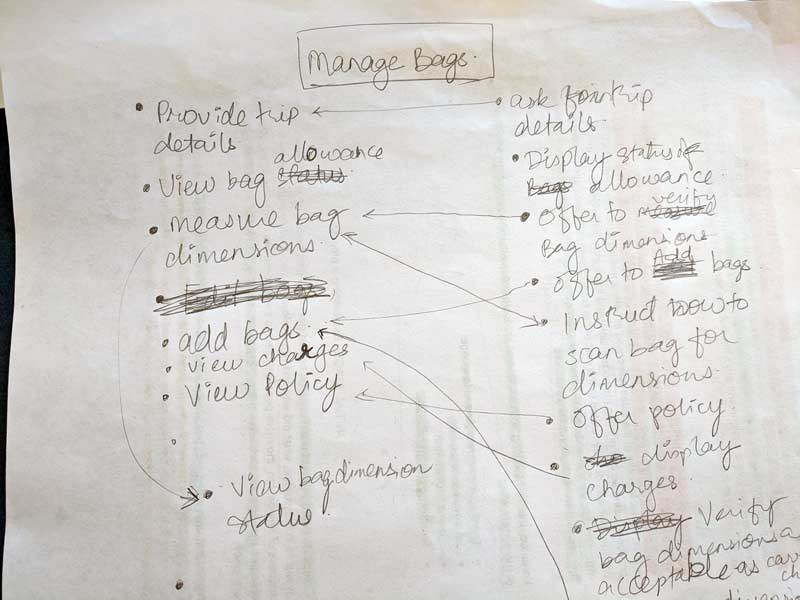 Manage Bags.
Provide trip
details
View bag allowance
measure bag
dimensions.
add bags.
View charges
View Policy
View bag dimension
status.
ask for trip
details
Display status of
Bags allowance
Offer to verify
Bag dimensions
Offer to Add bags
Instruct how to
scan bag for
dimensions.
Offer policy
display
charges
Display Verify
bag dimensions a
acceptable as